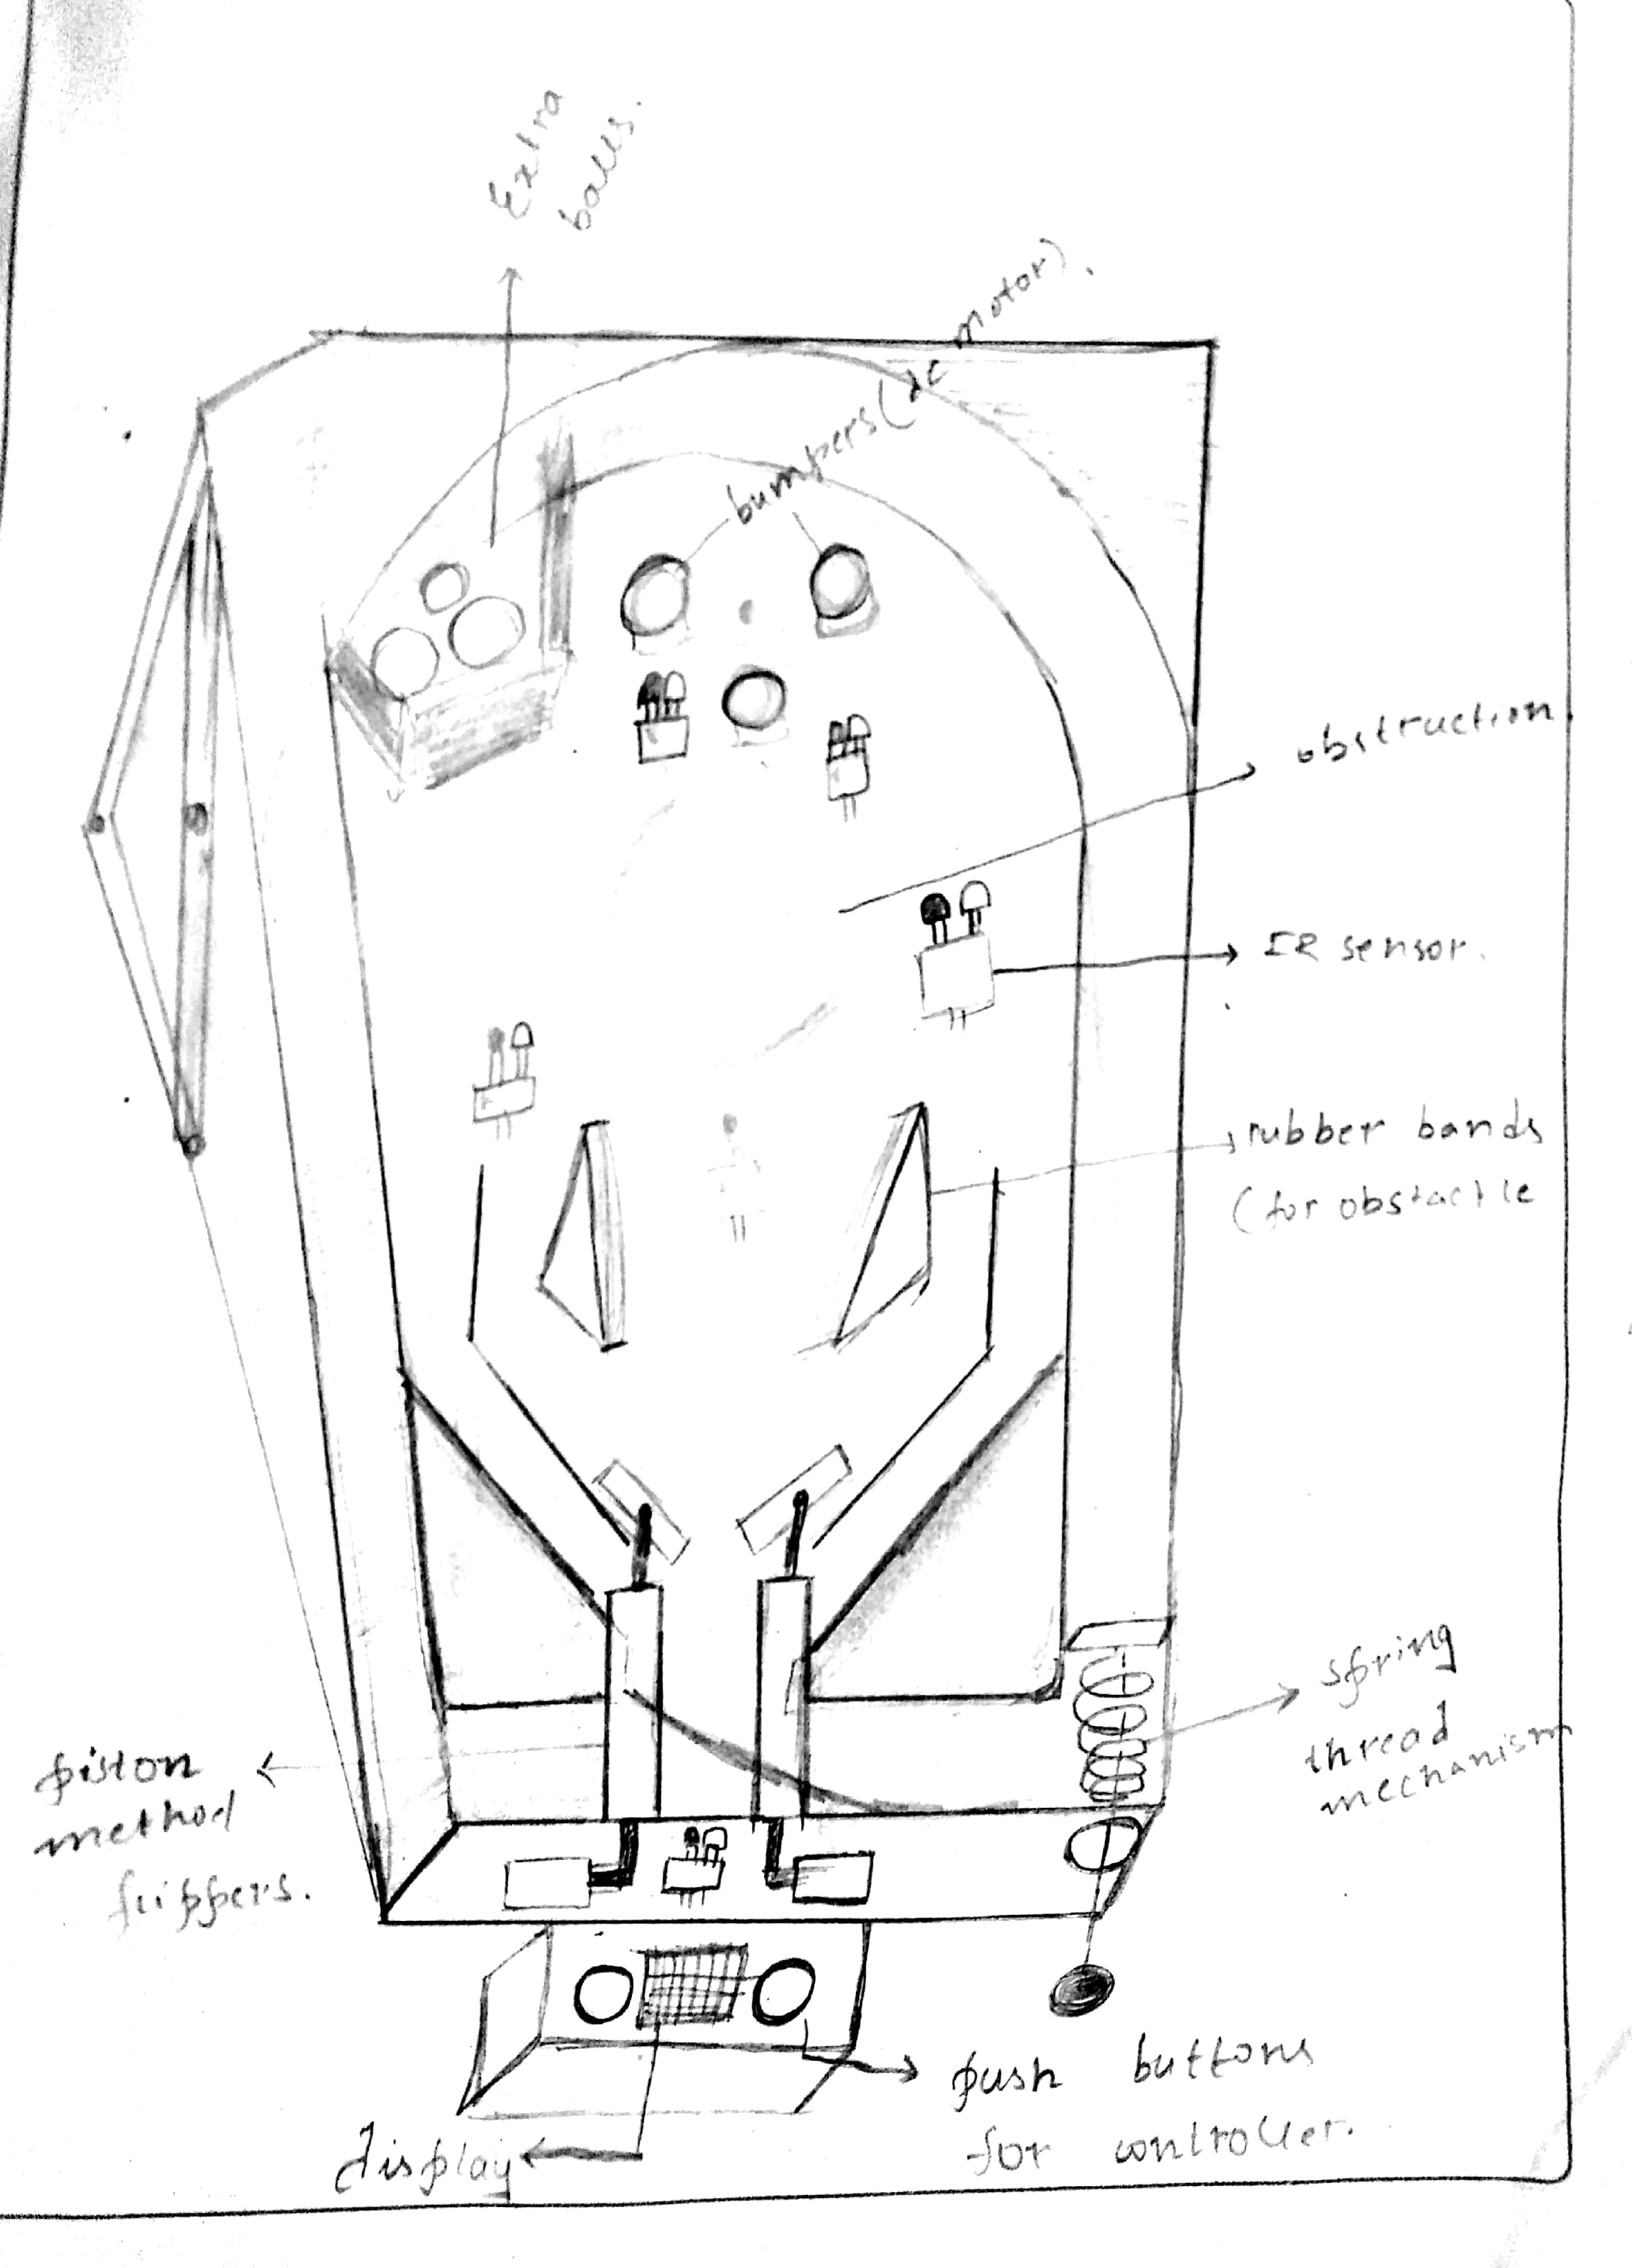 Extra
balls.
bumpers (dc motor).
obstruction.
IR sensor.
rubber bands
(for obstactle
spring
thread
mechanism
piston
method
flippers.
push buttons
for controller.
display